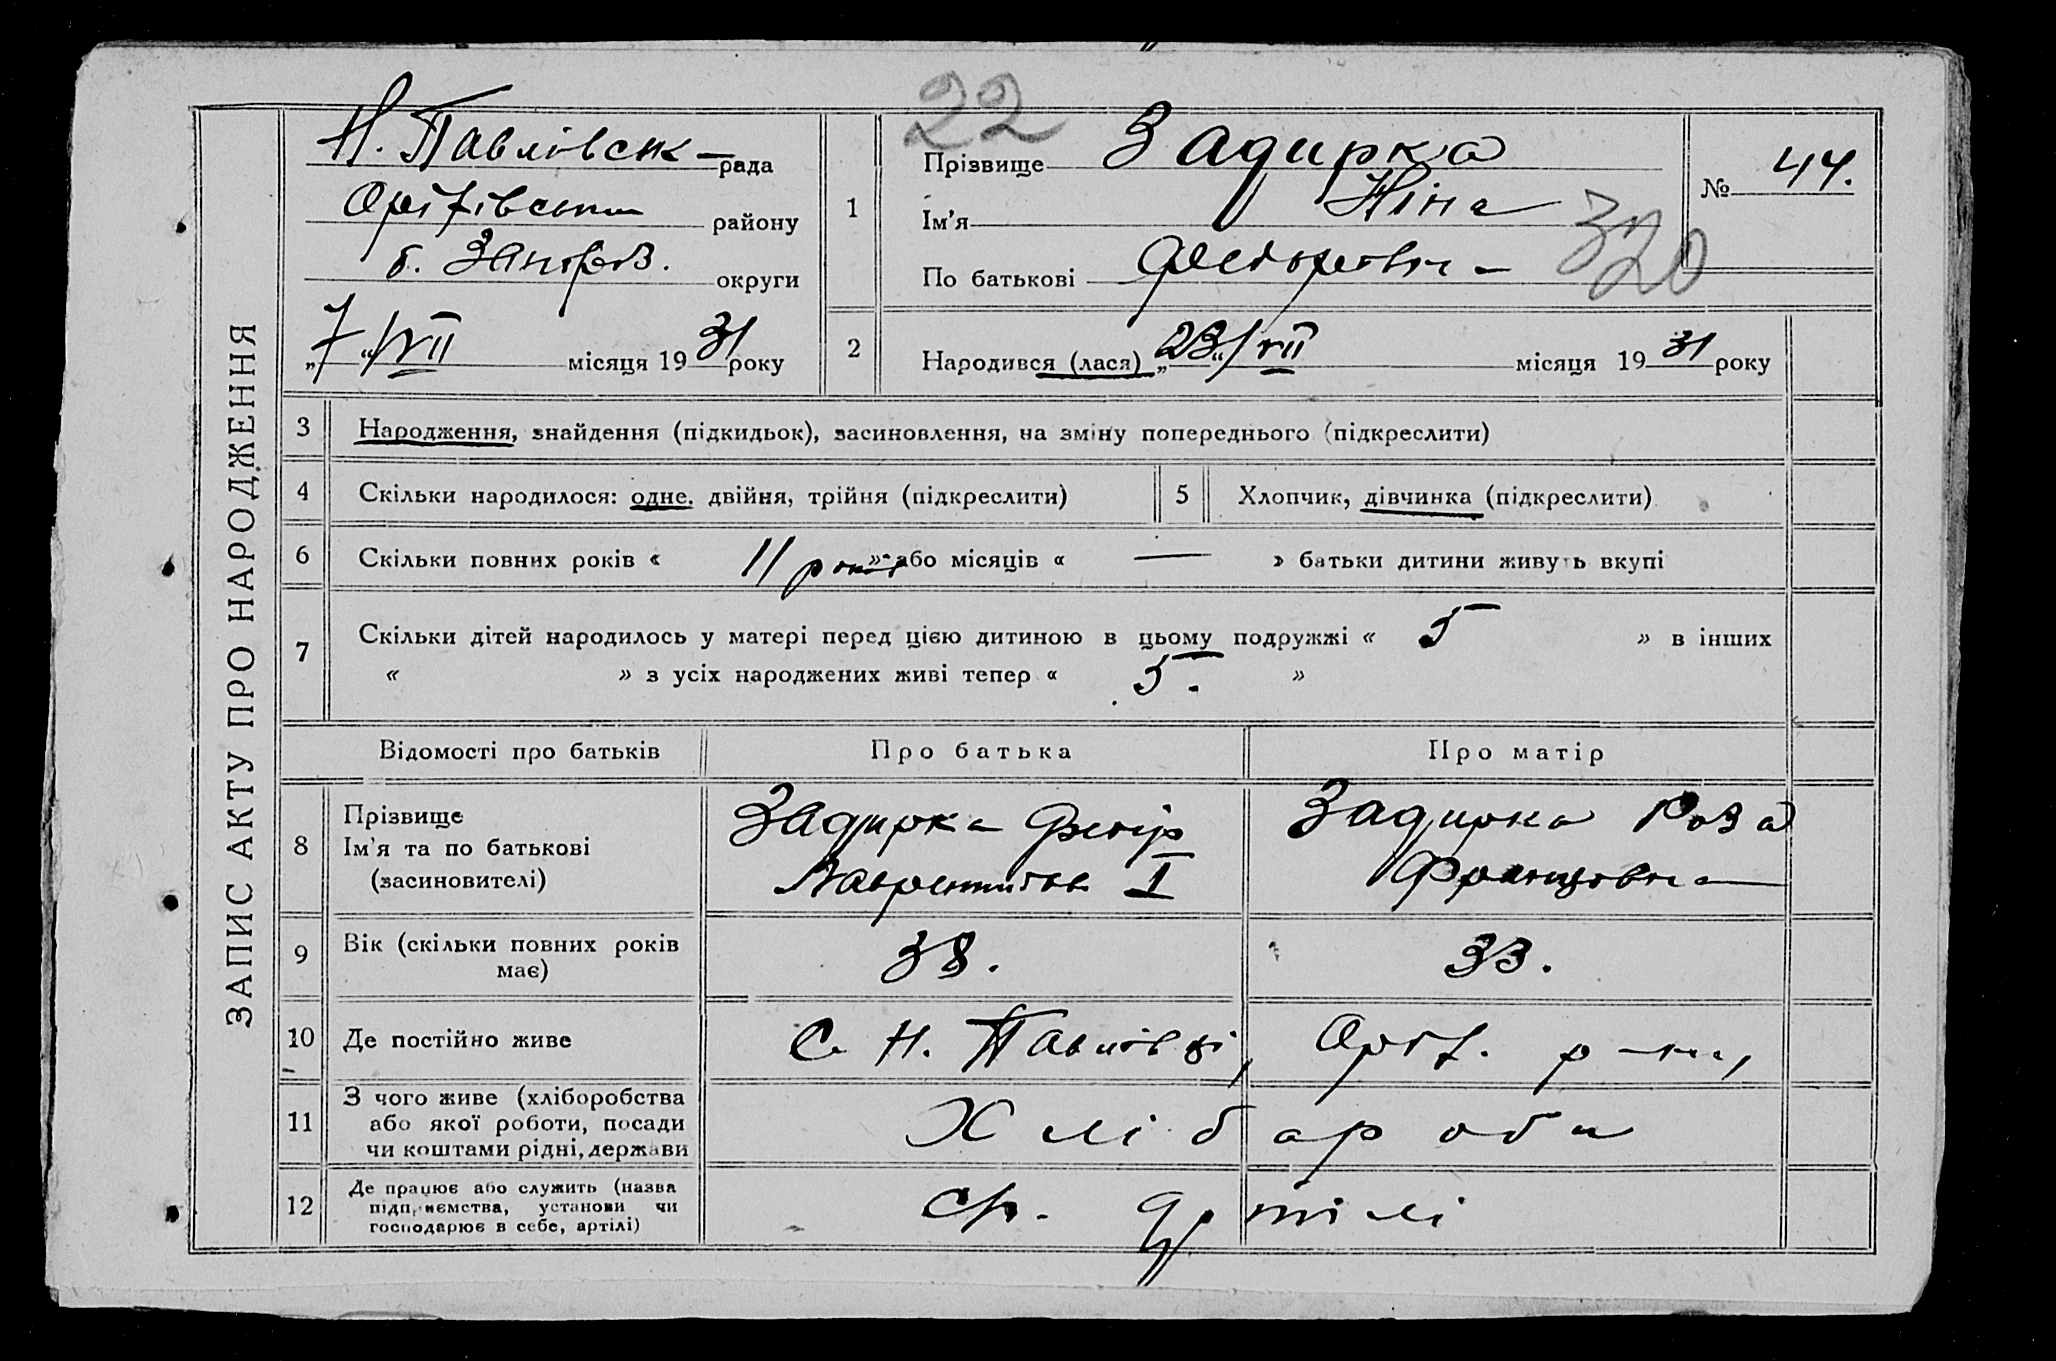 ЗАПИС АКТУ ПРО НАРОДЖЕННЯ
22
Н. Павлівськ рада
Оріхівськ району
б. Запоріз. округи
„7“/VII місяця 1931 року
1
Прізвище Задирка
Ім'я Ніна
По батькові Федоровна
№ 44.
320
2
Народився (лася) „23“/VII місяця 1931 року
3 Народження, знайдення (підкидьок), засиновлення, на зміну попереднього (підкреслити)
4 Скільки народилося: одне, двійня, трійня (підкреслити) 5 Хлопчик, дівчинка (підкреслити)
6 Скільки повних років « 11 років » або місяців « — » батьки дитини живуть вкупі
7 Скільки дітей народилось у матері перед цією дитиною в цьому подружжі « 5 » в інших
« » з усіх народжених живі тепер « 5. »
Відомості про батьків Про батька Про матір
8 Прізвище
Ім'я та по батькові
(засиновителі)
Задирка Федір
I
Задирка Роза
Францовна
9 Вік (скільки повних років
має)
38. 33.
10 Де постійно живе С. Н. Павлівці, Оріх. р-ну,
11 З чого живе (хліборобства
або якої роботи, посади
чи коштами рідні, держави
Хлібароби
12 Де працює або служить (назва
підприємства, установи чи
господарює в себе, артілі)
ср. Артілі